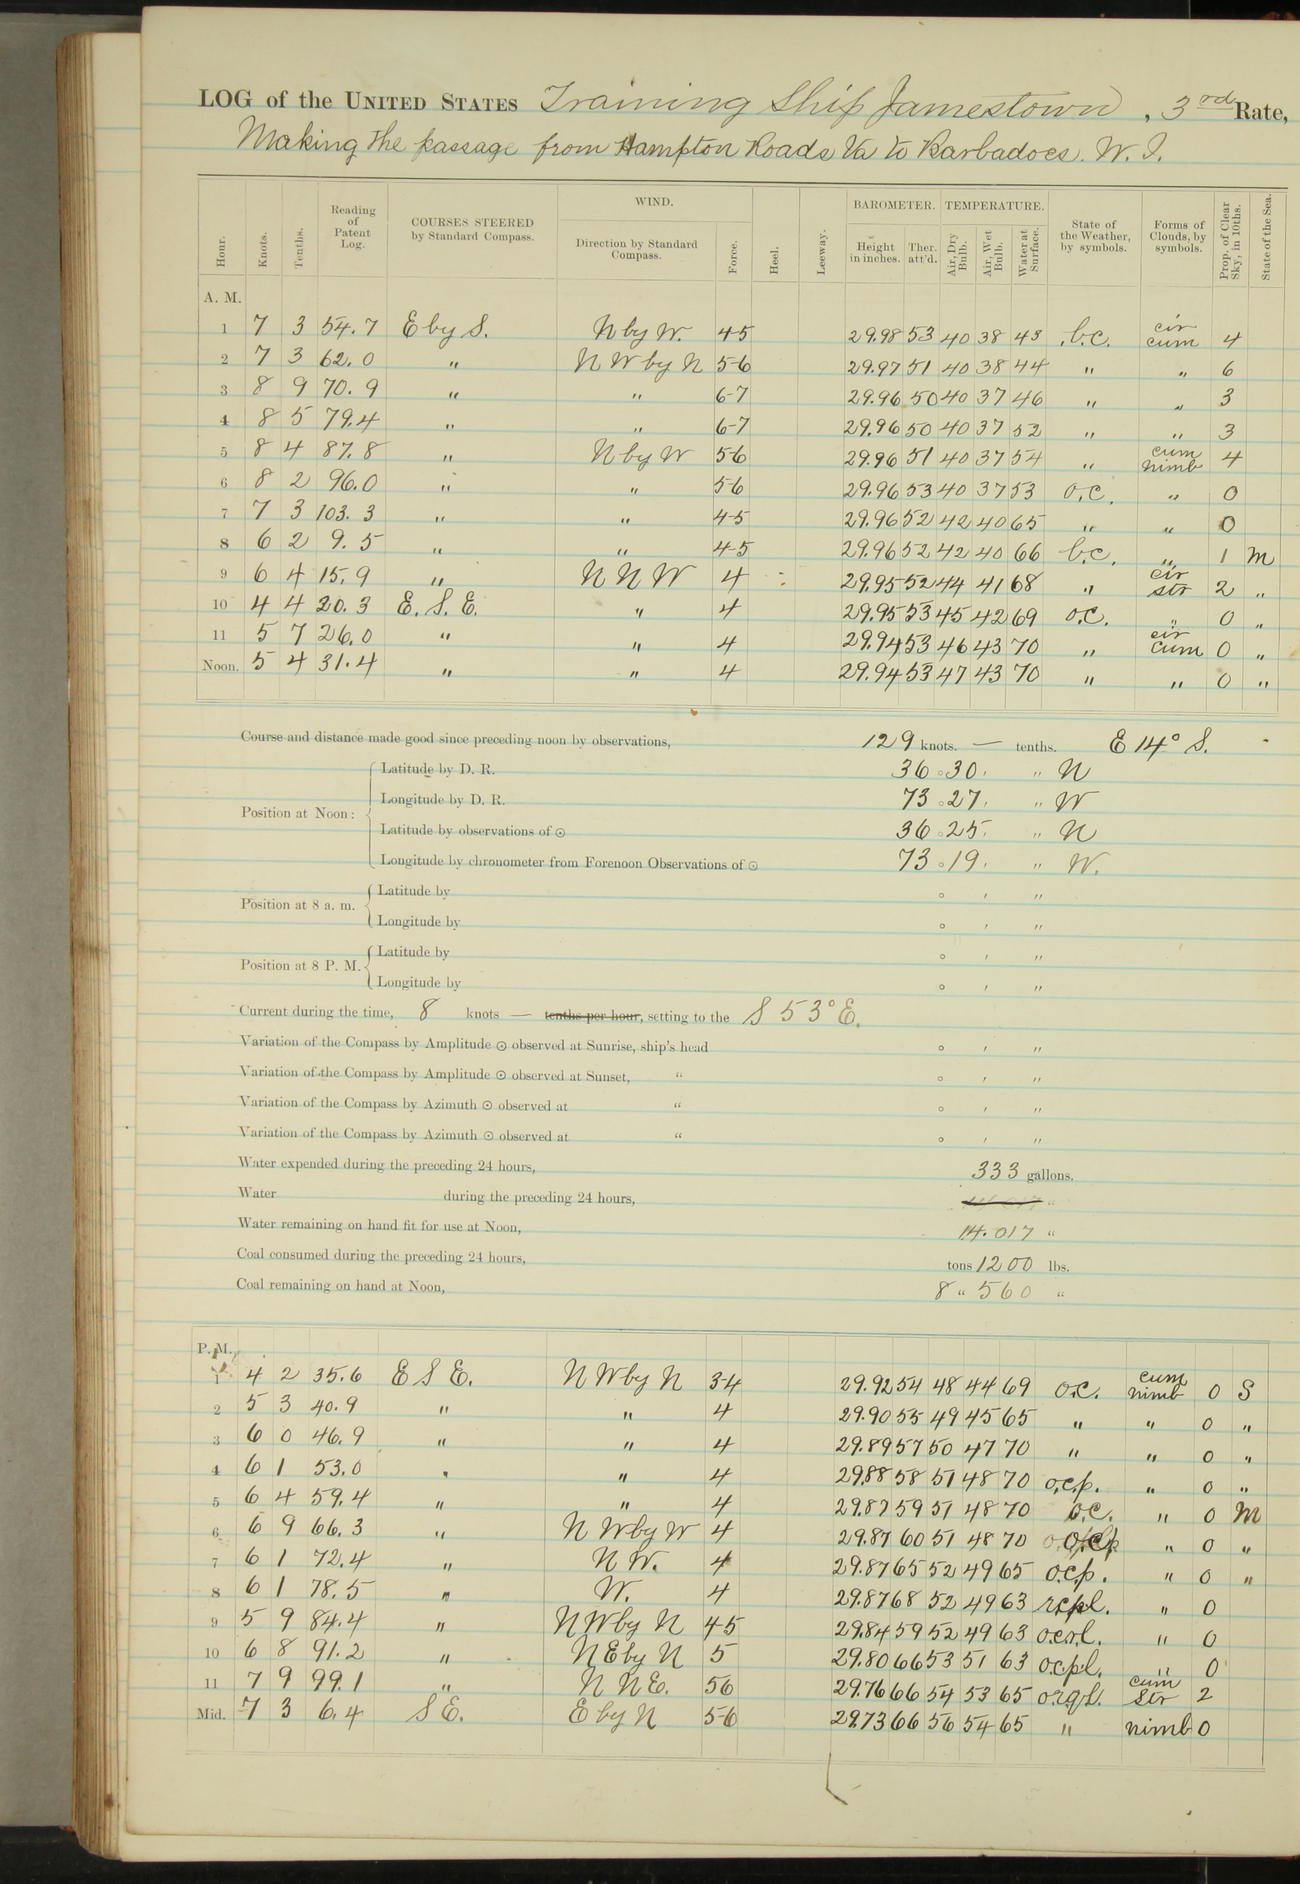 LOG of the UNITED STATES Training Ship Jamestown, 3rd Rate,
Making the passage from Hampton Roads Va to Barbadoes. W. I.
Hour. Knots. Tenths. Reading of Patent Log. COURSES STEERED by Standard Compass. WIND. Direction by Standard Compass. Force. Heel. Leeway. BAROMETER. Height in inches. Ther. att'd. TEMPERATURE. Air, Dry Bulb. Air, Wet Bulb. Water at Surface. State of the Weather, by symbols. Forms of Clouds, by symbols. Prop. of Clear Sky, in 10ths. State of the Sea.
A. M.
1 7 3 54.7 E by S. N by W. 4-5 29.98 53 40 38 43 b.c. cir cum 4
2 7 3 62.0 " N W by N 5-6 29.97 51 40 38 44 " " 6
3 8 9 70.9 " " 6-7 29.96 50 40 37 46 " " 3
4 8 5 79.4 " " 6-7 29.96 50 40 37 52 " " 3
5 8 4 87.8 " N by W 5-6 29.96 51 40 37 54 " cum nimb 4
6 8 2 96.0 " " 5-6 29.96 53 40 37 53 o.c. " 0
7 7 3 103.3 " " 4-5 29.96 52 42 40 65 " " 0
8 6 2 9.5 " " 4-5 29.96 52 42 40 66 b.c. " 1 M
9 6 4 15.9 " N N W 4 29.95 52 44 41 68 " cir str 2 "
10 4 4 20.3 E. S. E. " 4 29.95 53 45 42 69 o.c. " 0 "
11 5 7 26.0 " " 4 29.94 53 46 43 70 " cir cum 0 "
Noon. 5 4 31.4 " " 4 29.94 53 47 43 70 " " 0 "
Course and distance made good since preceding noon by observations, 129 knots. — tenths. E 14° S.
Position at Noon: Latitude by D. R. 36 ° 30 ' " N
Longitude by D. R. 73 ° 27 ' " W
Latitude by observations of ☉ 36 ° 25 ' " N
Longitude by chronometer from Forenoon Observations of ☉ 73 ° 19 ' " W.
Position at 8 a. m. Latitude by ° ' "
Longitude by ° ' "
Position at 8 P. M. Latitude by ° ' "
Longitude by ° ' "
Current during the time, 8 knots — tenths per hour, setting to the S 53° E.
Variation of the Compass by Amplitude ☉ observed at Sunrise, ship's head ° ' "
Variation of the Compass by Amplitude ☉ observed at Sunset, " ° ' "
Variation of the Compass by Azimuth ☉ observed at " ° ' "
Variation of the Compass by Azimuth ☉ observed at " ° ' "
Water expended during the preceding 24 hours, 333 gallons.
Water during the preceding 24 hours, "
Water remaining on hand fit for use at Noon, 14.017 "
Coal consumed during the preceding 24 hours, tons 1200 lbs.
Coal remaining on hand at Noon, 8 " 560 "
P. M.
1 4 2 35.6 E S E. N W by N 3-4 29.92 54 48 44 69 o.c. cum nimb 0 S
2 5 3 40.9 " " 4 29.90 55 49 45 65 " " 0 "
3 6 0 46.9 " " 4 29.89 57 50 47 70 " " 0 "
4 6 1 53.0 " " 4 29.88 58 51 48 70 o.c.p. " 0 "
5 6 4 59.4 " " 4 29.87 59 51 48 70 o.c. " 0 M
6 6 9 66.3 " N W by W 4 29.87 60 51 48 70 " 0 "
7 6 1 72.4 " N W. 4 29.87 65 52 49 65 o.c.p. " 0 "
8 6 1 78.5 " W. 4 29.87 68 52 49 63 " 0
9 5 9 84.4 " N W by N 4-5 29.84 59 52 49 63 " 0
10 6 8 91.2 " N E by N 5 29.80 66 53 51 63 o.c.p.l. " 0
11 7 9 99.1 " N N E. 56 29.76 66 54 53 65 o.r.q.l. cum str 2
Mid. 7 3 6.4 S E. E by N 5-6 29.73 66 56 54 65 " nimb 0